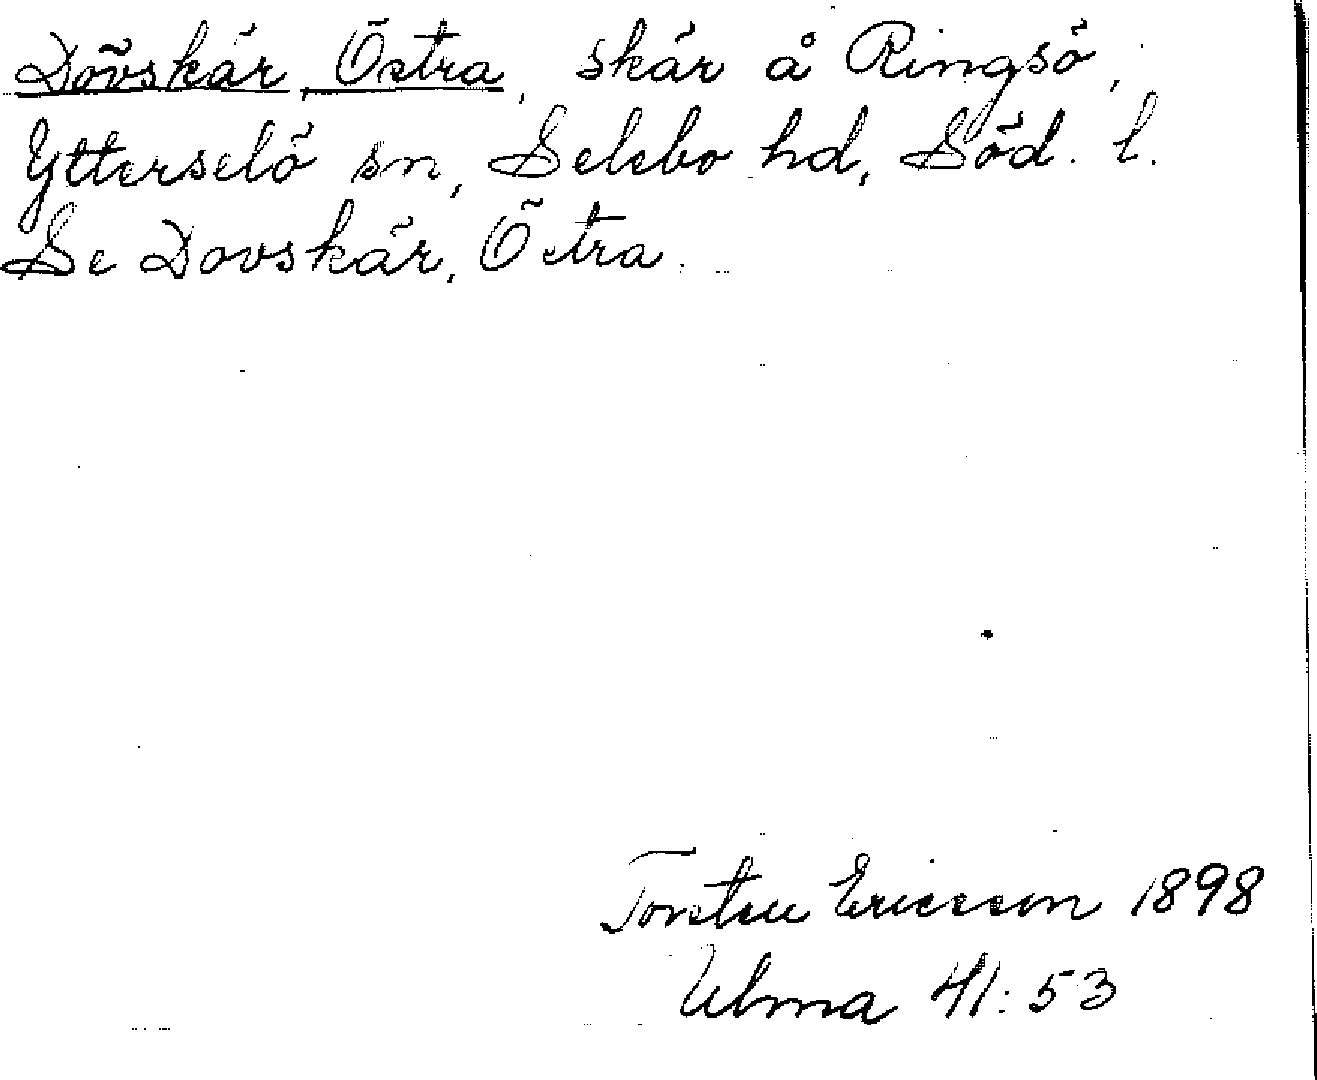 Dövskär, Östra, skär å Ringsö,
Ytterselö sn, Selebo hd, Söd. l.
Se Dovskär, Östra.
Torsten Ericsson 1898
Ulma 41:53